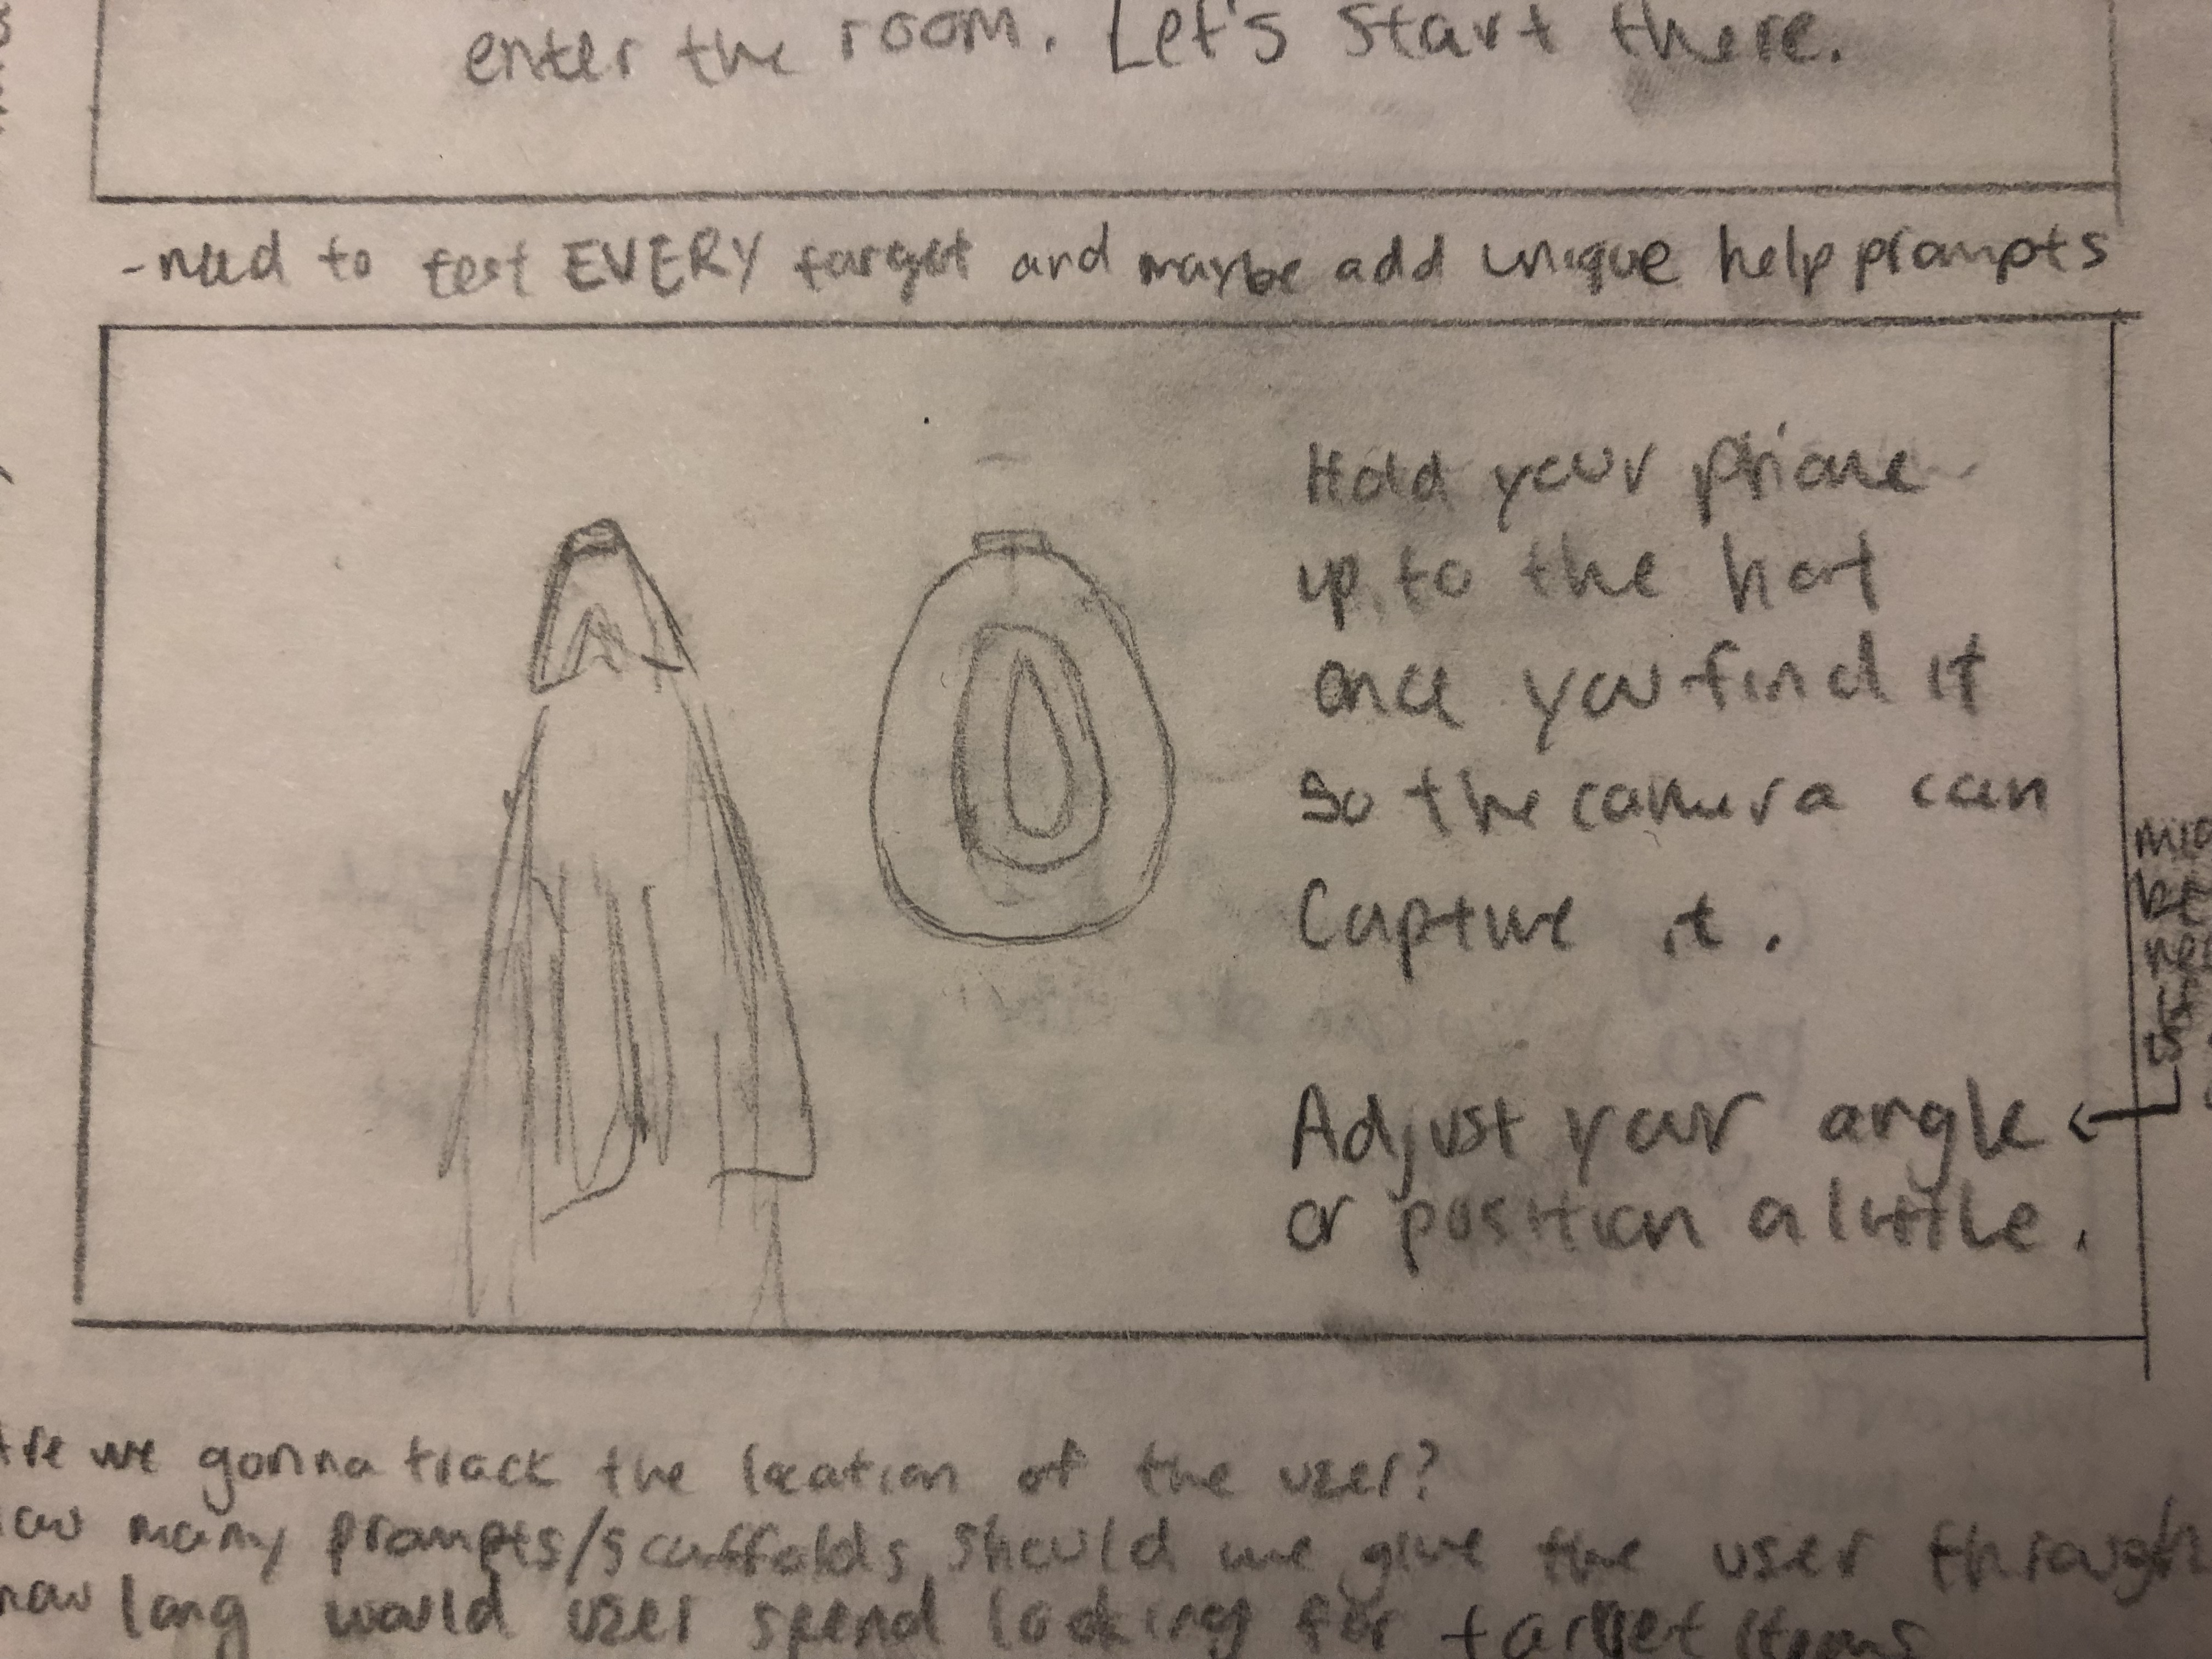 enter the room. Let's start there.
-need to test EVERY target and maybe add unique help prompts
Hold your phone
up to the hat
once you find it
so the camera can
Capture it.
Adjust your angle
or position a little.
we gonna track the location of the user?
many prompts/scaffolds should we give the user through
long would user spend looking for target items